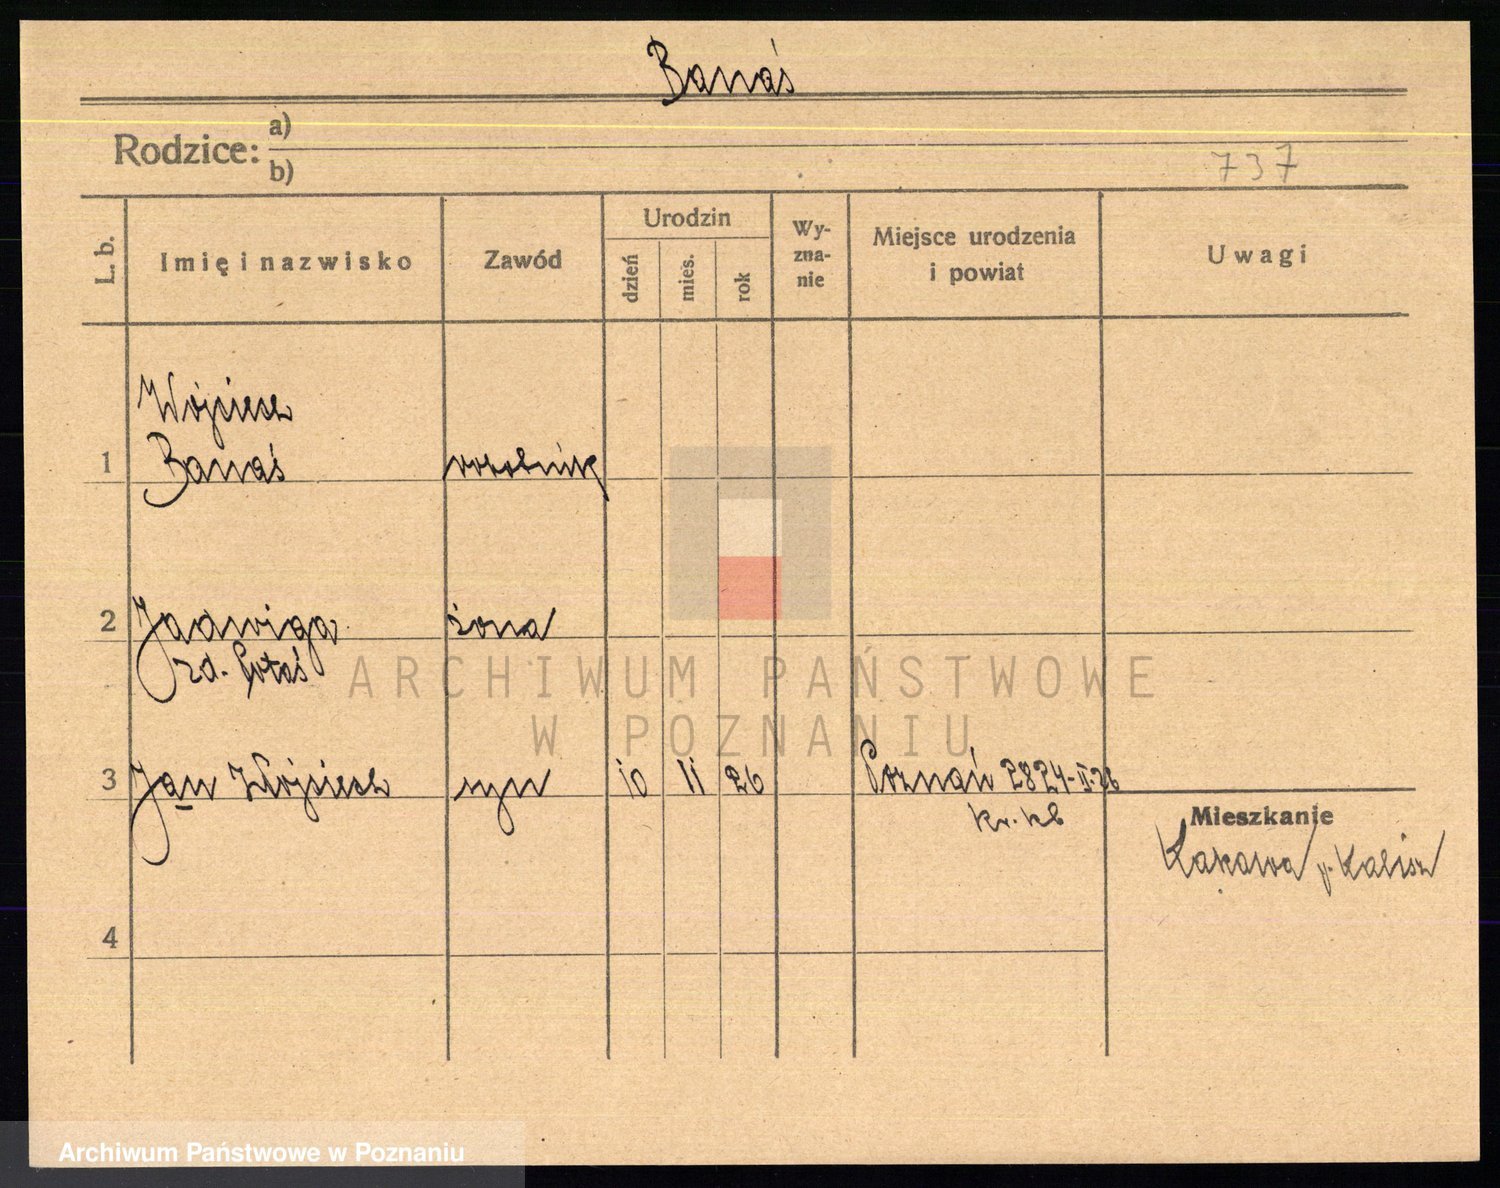 Banaś
Rodzice: a)
b)
737
L. b.
Imię i nazwisko
Zawód
Urodzin
dzień
mies.
rok
Wy-
zna-
nie
Miejsce urodzenia
i powiat
Uwagi
Wojciech
1 Banaś
2 Jadwiga żona
zd.
3 Jan Wojciech syn 10 II 26 Poznań 2824-II-26
Mieszkanie
p. Kalisz
4
ARCHIWUM PAŃSTWOWE
W POZNANIU
Archiwum Państwowe w Poznaniu